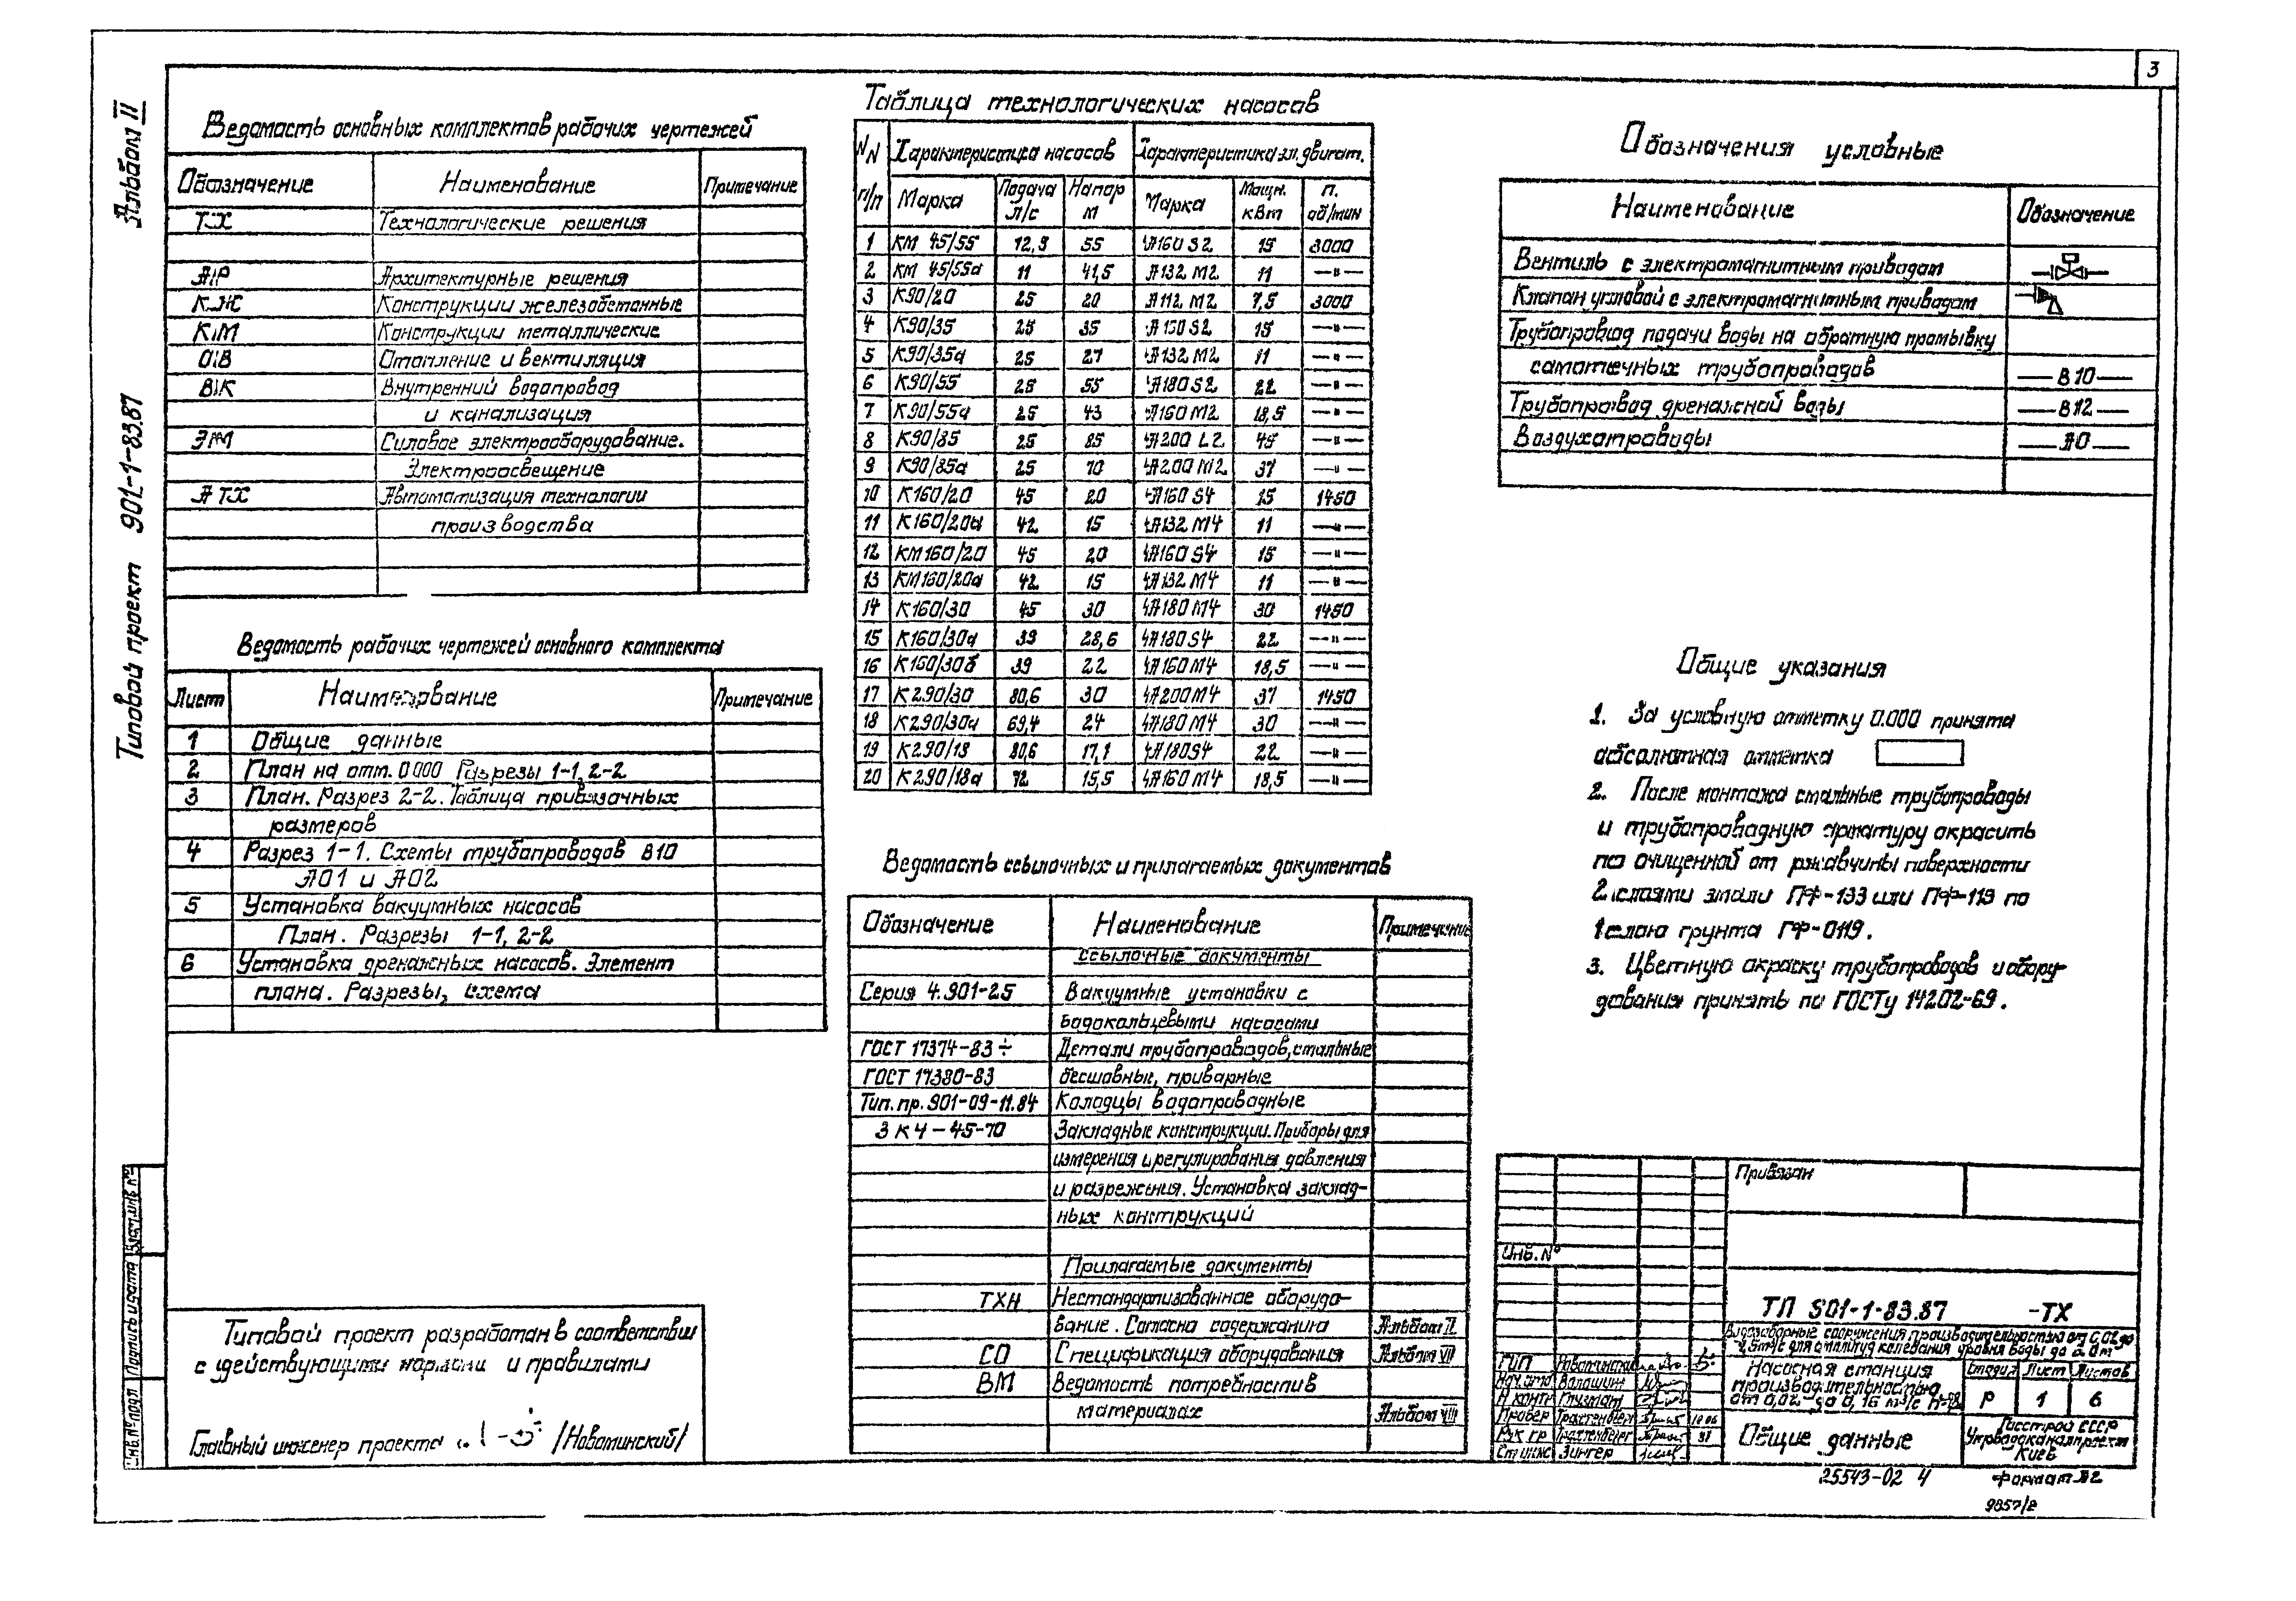 3
Альбом II
Типовой проект 901-1-83.87
Ведомость основных комплектов рабочих чертежей
Обозначение Наименование Примечание
ТХ Технологические решения
АР Архитектурные решения
КЖ Конструкции железобетонные
КМ Конструкции металлические
ОВ Отопление и вентиляция
ВК Внутренний водопровод
и канализация
ЭМ Силовое электрооборудование.
Электроосвещение
АТХ Автоматизация технологии
производства
Ведомость рабочих чертежей основного комплекта
Лист Наименование Примечание
1 Общие данные
2 План на отм. 0.000 Разрезы 1-1, 2-2
3 План. Разрез 2-2. Таблица привязочных
размеров
4 Разрез 1-1. Схемы трубопроводов В10
А01 и А02
5 Установка вакуумных насосов
План. Разрезы 1-1, 2-2
6 Установка дренажных насосов. Элемент
плана. Разрезы, схема
Типовой проект разработан в соответствии
с действующими нормами и правилами
Главный инженер проекта /Новоминский/
Таблица технологических насосов
NN Характеристика насосов Характеристика эл. двигат.
п/п Марка Подача л/с Напор м Марка Мощн. кВт п. об/мин
1 КМ 45/55 12,5 55 4А160S2 15 3000
2 КМ 45/55а 11 41,5 А132 М2 11 —"—
3 К90/20 25 20 А112 М2 7,5 3000
4 К90/35 25 35 А160S2 15 —"—
5 К90/35а 25 27 4А132 М2 11 —"—
6 К90/55 25 55 4А180S2 22 —"—
7 К90/55а 25 43 4А160М2 18,5 —"—
8 К90/85 25 85 4А200 L2 45 —"—
9 К90/85а 25 70 4А200 М2 37 —"—
10 К160/20 45 20 4А160 S4 15 1450
11 К160/20а 42 15 4А132 М4 11 —"—
12 КМ160/20 45 20 4А160 S4 15 —"—
13 КМ160/20а 42 15 4А132 М4 11 —"—
14 К160/30 45 30 4А180 М4 30 1450
15 К160/30а 39 28,6 4А180 S4 22 —"—
16 К160/30б 39 22 4А160 М4 18,5 —"—
17 К290/30 80,6 30 4А200М4 37 1450
18 К290/30а 69,4 24 4А180 М4 30 —"—
19 К290/18 80,6 17,1 4А180S4 22 —"—
20 К290/18а 72 15,5 4А160 М4 18,5 —"—
Ведомость ссылочных и прилагаемых документов
Обозначение Наименование Примечание
Ссылочные документы
Серия 4.901-25 Вакуумные установки с
водокольцевыми насосами
ГОСТ 17374-83 ÷ Детали трубопроводов, стальные
ГОСТ 17380-83 бесшовные, приварные
Тип. пр. 901-09-11.84 Колодцы водопроводные
ЗК4-45-70 Закладные конструкции. Приборы для
измерения и регулирования давления
и разрежения. Установка заклад-
ных конструкций
Прилагаемые документы
ТХН Нестандартизованное оборудо-
вание. Согласно содержанию Альбом II
СО Спецификация оборудования Альбом VII
ВМ Ведомость потребности в
материалах Альбом VIII
Обозначения условные
Наименование Обозначение
Вентиль с электромагнитным приводом
Клапан угловой с электромагнитным приводом
Трубопровод подачи воды на обратную промывку
самотечных трубопроводов —В10—
Трубопровод дренажной воды —В12—
Воздухопроводы —А0—
Общие указания
1. За условную отметку 0.000 принята
абсолютная отметка
2. После монтажа стальные трубопроводы
и трубопроводную арматуру окрасить
по очищенной от ржавчины поверхности
2 слоями эмали ПФ-133 или ПФ-119 по
1 слою грунта ГФ-0119.
3. Цветную окраску трубопроводов и обору-
дования принять по ГОСТу 14202-69.
Привязан
Инв. №
ТП 901-1-83.87 -ТХ
Водозаборные сооружения производительностью от 0,02 до
для амплитуд колебания уровня воды до
ГИП Новоминский
Нач. отд Волошин
Н контр Глузман
Провер Трахтенберг
Рук гр Трахтенберг
Ст инж Зингер
Насосная станция
производительностью
от 0,02 до 0,16 м³/с
Стадия Лист Листов
Р 1 6
Общие данные
Госстрой СССР
Укрводоканалпроект
Киев
25543-02 4
Формат А2
9857/2
Инв. № подл Подпись и дата Взам. инв. №